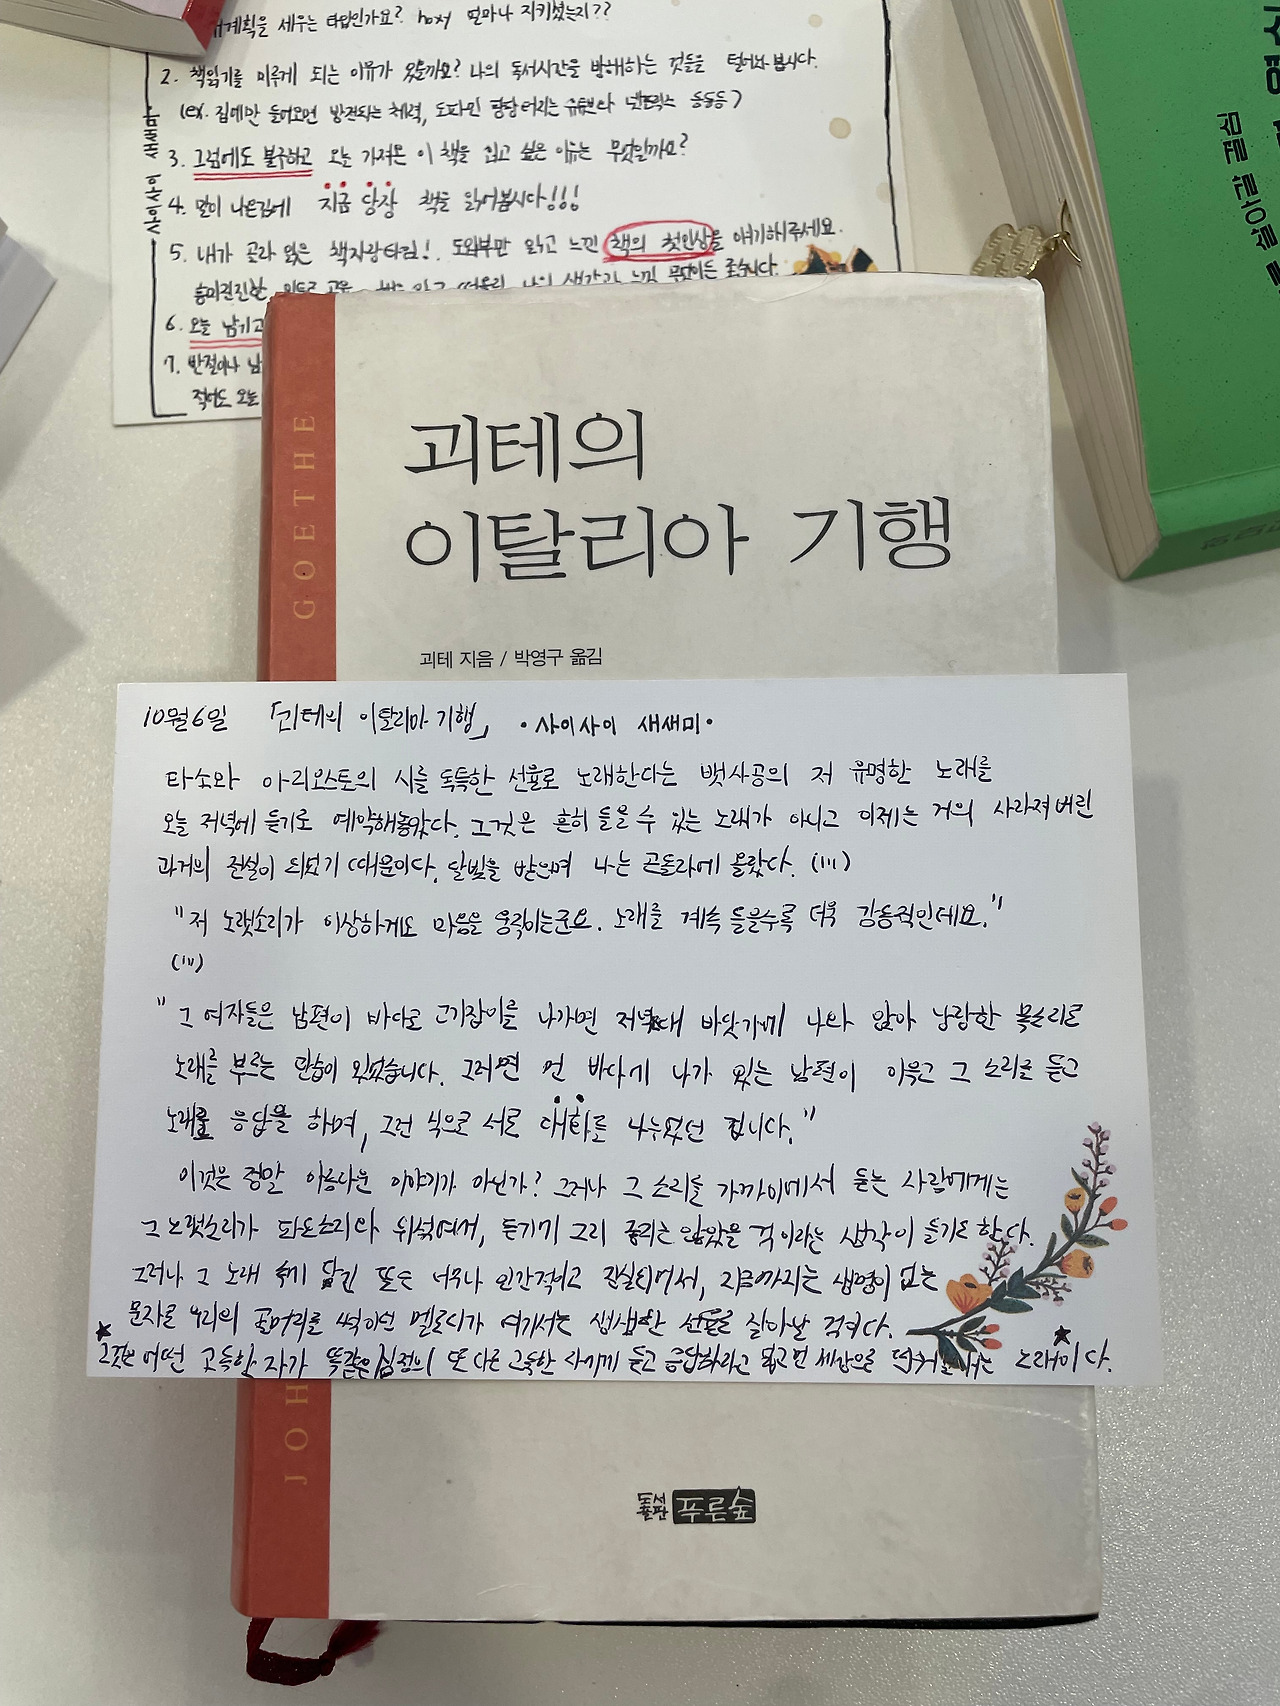 계획을 세우는 타입인가요? hoxy 얼마나 지키셨는지??
2. 책읽기를 미루게 되는 이유가 있을까요? 나의 독서시간을 방해하는 것들을 털어놔 봅시다.
(ex. 집에만 들어오면 방전되는 체력, 도파민 팡팡 터지는 유튜브나 넷플릭스 등등등)
3. 그럼에도 불구하고 오늘 가져온 이 책을 읽고 싶은 이유는 무엇일까요?
4. 말이 나온김에 지금 당장 책을 읽어봅시다!!!
5. 내가 골라 읽은 책자랑타임! 도입부만 읽고 느낀 책의 첫인상을 얘기해주세요.
흥미진진한,
6. 오늘 남기고
7. 반절이나 남
적어도 오늘
사이사이 새새미
괴테의
이탈리아 기행
괴테 지음 / 박영구 옮김
GOETHE
10월6일 「괴테의 이탈리아 기행」 •사이사이 새새미•
타소와 아리오스토의 시를 독특한 선율로 노래한다는 뱃사공의 저 유명한 노래를
오늘 저녁에 듣기로 예약해놓았다. 그것은 흔히 들을 수 있는 노래가 아니고 이제는 거의 사라져버린
과거의 전설이 되었기 때문이다. 달빛을 받으며 나는 곤돌라에 올랐다. (...)
"저 노랫소리가 이상하게도 마음을 움직이는군요. 노래를 계속 들을수록 더욱 감동적인데요."
(...)
"그 여자들은 남편이 바다로 고기잡이를 나가면 저녁때 바닷가에 나와 앉아 낭랑한 목소리로
노래를 부르는 풍습이 있었습니다. 그러면 먼 바다에 나가 있는 남편이 이윽고 그 소리를 듣고
노래로 응답을 하며, 그런 식으로 서로 대화를 나누었던 겁니다."
이것은 정말 아름다운 이야기가 아닌가? 그러나 그 소리를 가까이에서 듣는 사람에게는
그 노랫소리가 파도소리와 뒤섞여서, 듣기에 그리 좋지는 않았을 것이라는 생각이 들기도 한다.
그러나 그 노래 속에 담긴 뜻은 너무나 인간적이고 진실되어서, 지금까지는 생명이 없는
문자로 우리의 골머리를 썩이던 멜로디가 여기서는 생생한 선율로 살아난 것이다.
★ 그것은 어떤 고독한 자가 똑같은 심정의 또 다른 고독한 자에게 듣고 응답하라고 멀고 먼 세상으로 노래★이다.
JOH
도서출판 푸른숲